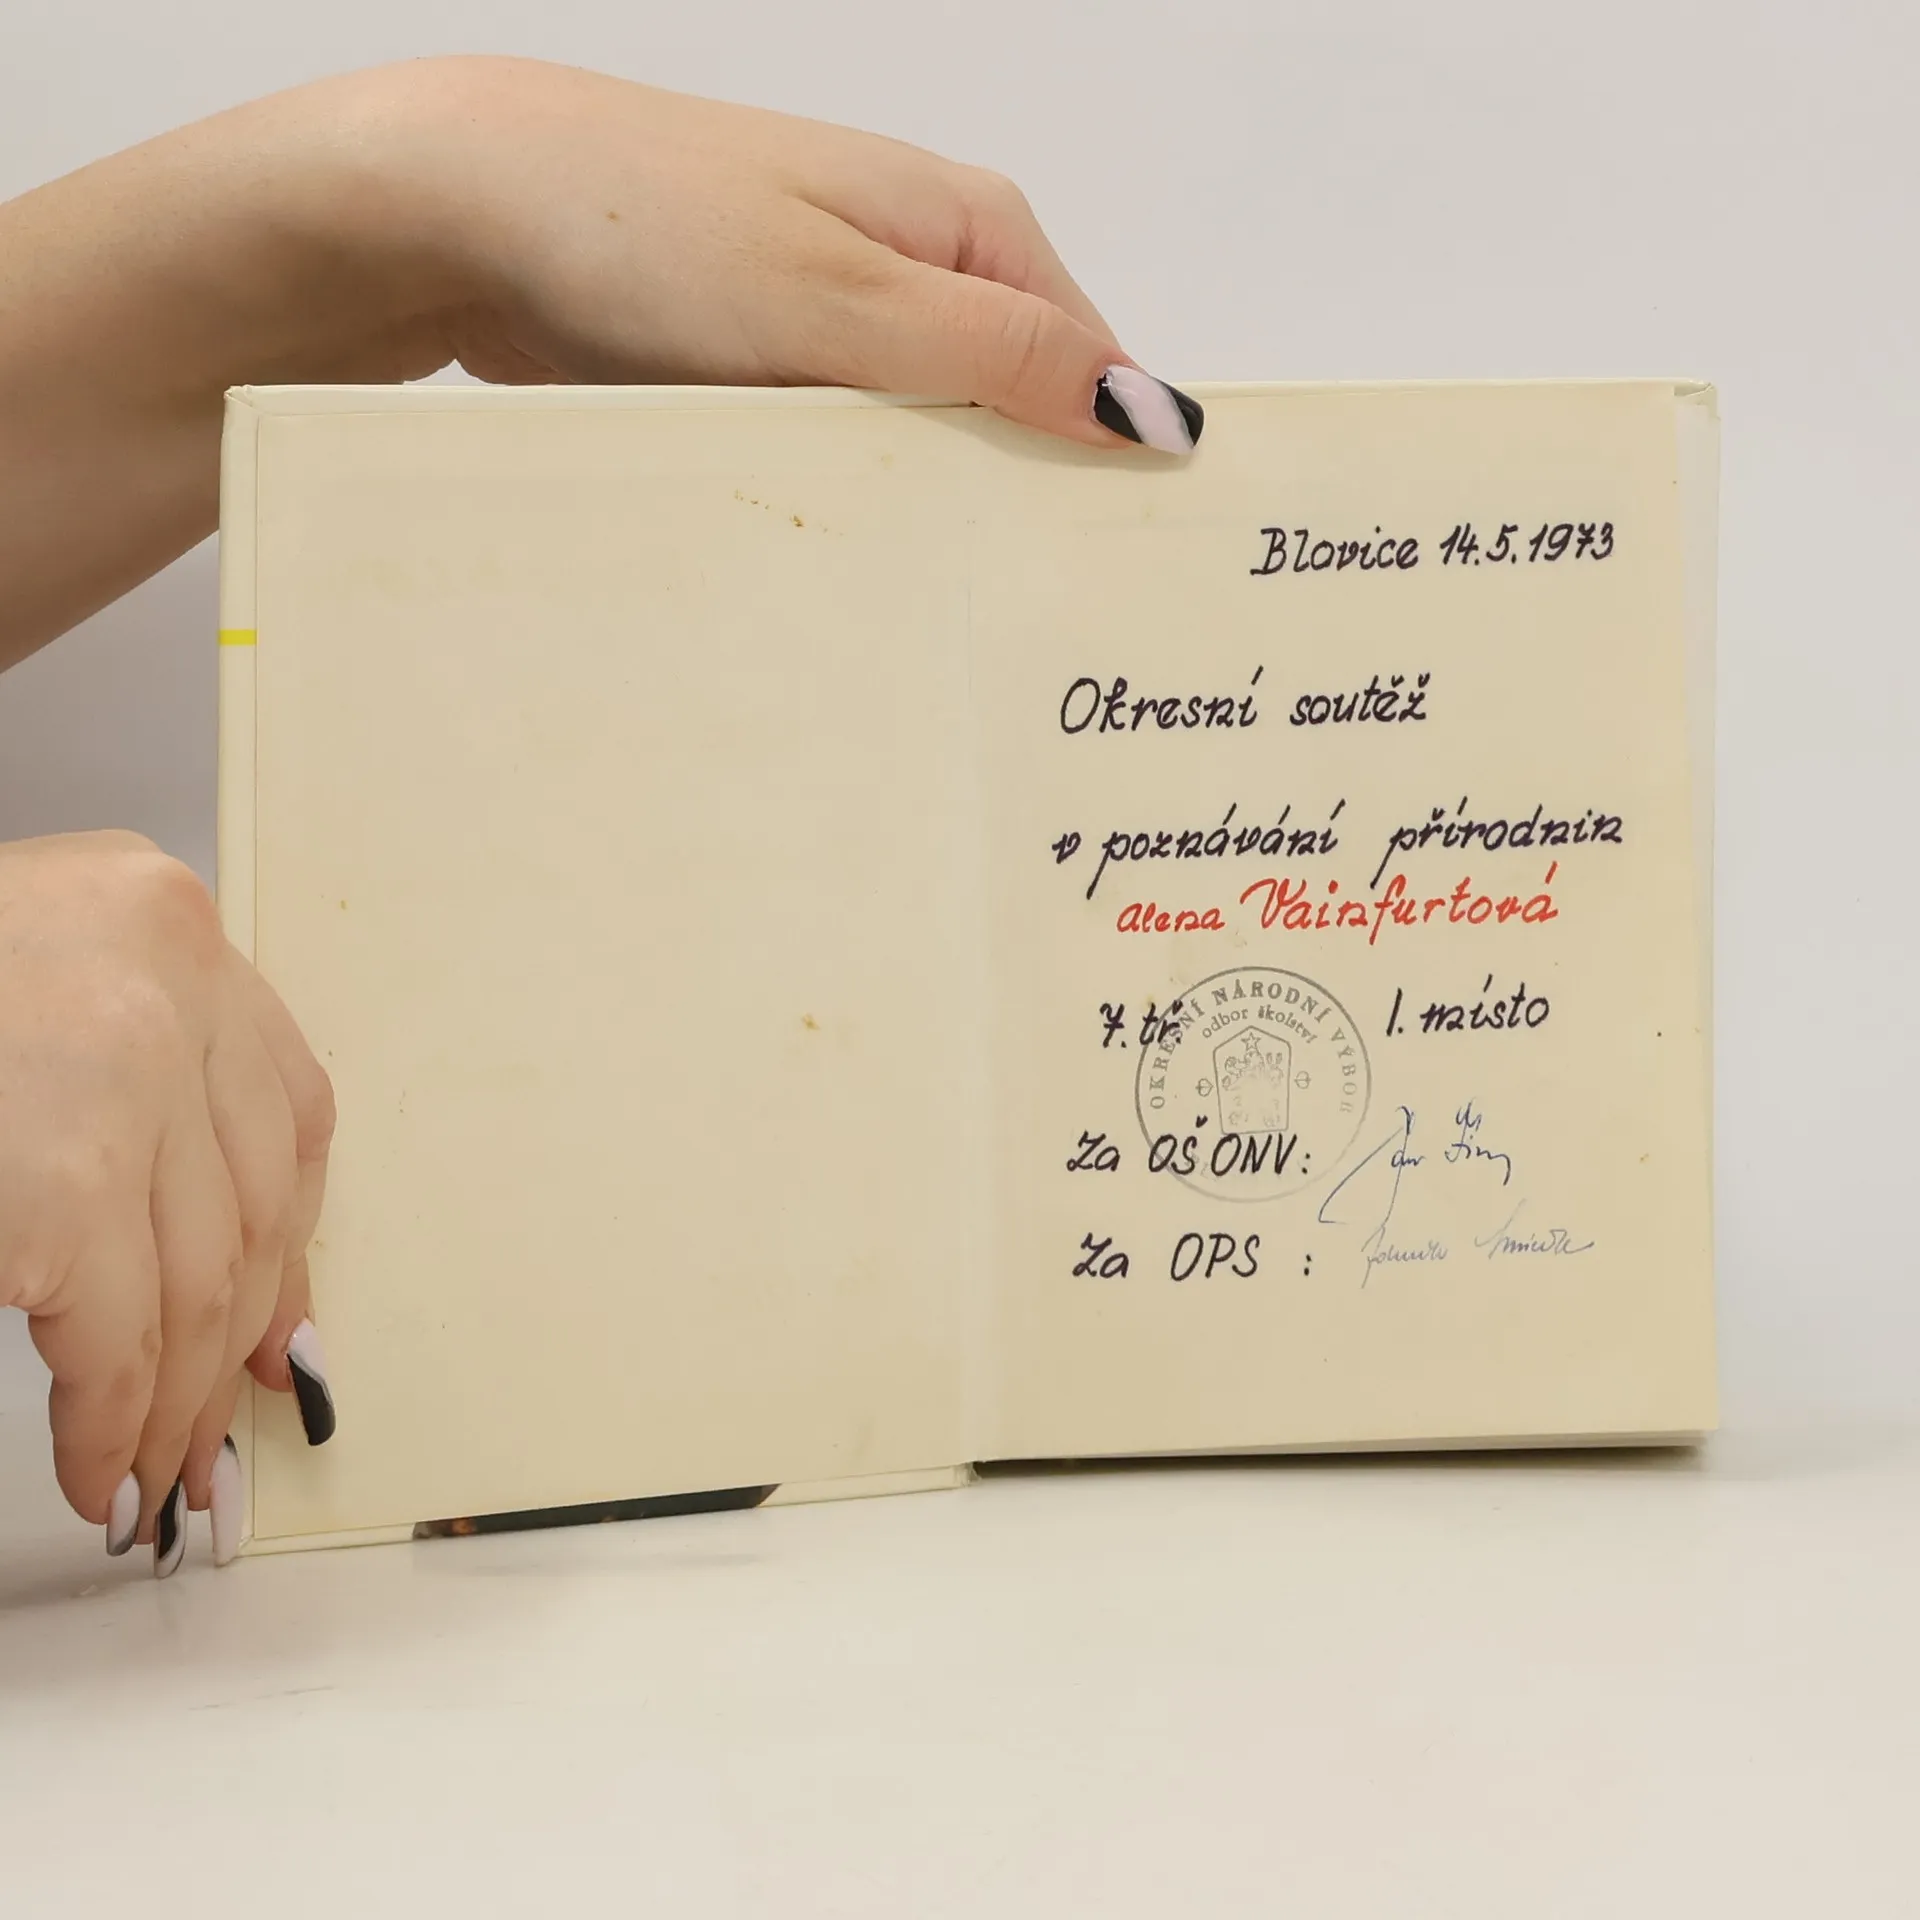 Blovice 14.5.1973
Okresní soutěž
v poznávání přírodnin
Alena Vainfurtová
7. tř. 1. místo
OKRESNÍ NÁRODNÍ VÝBOR
odbor školství
Za OŠ ONV:
Za OPS :